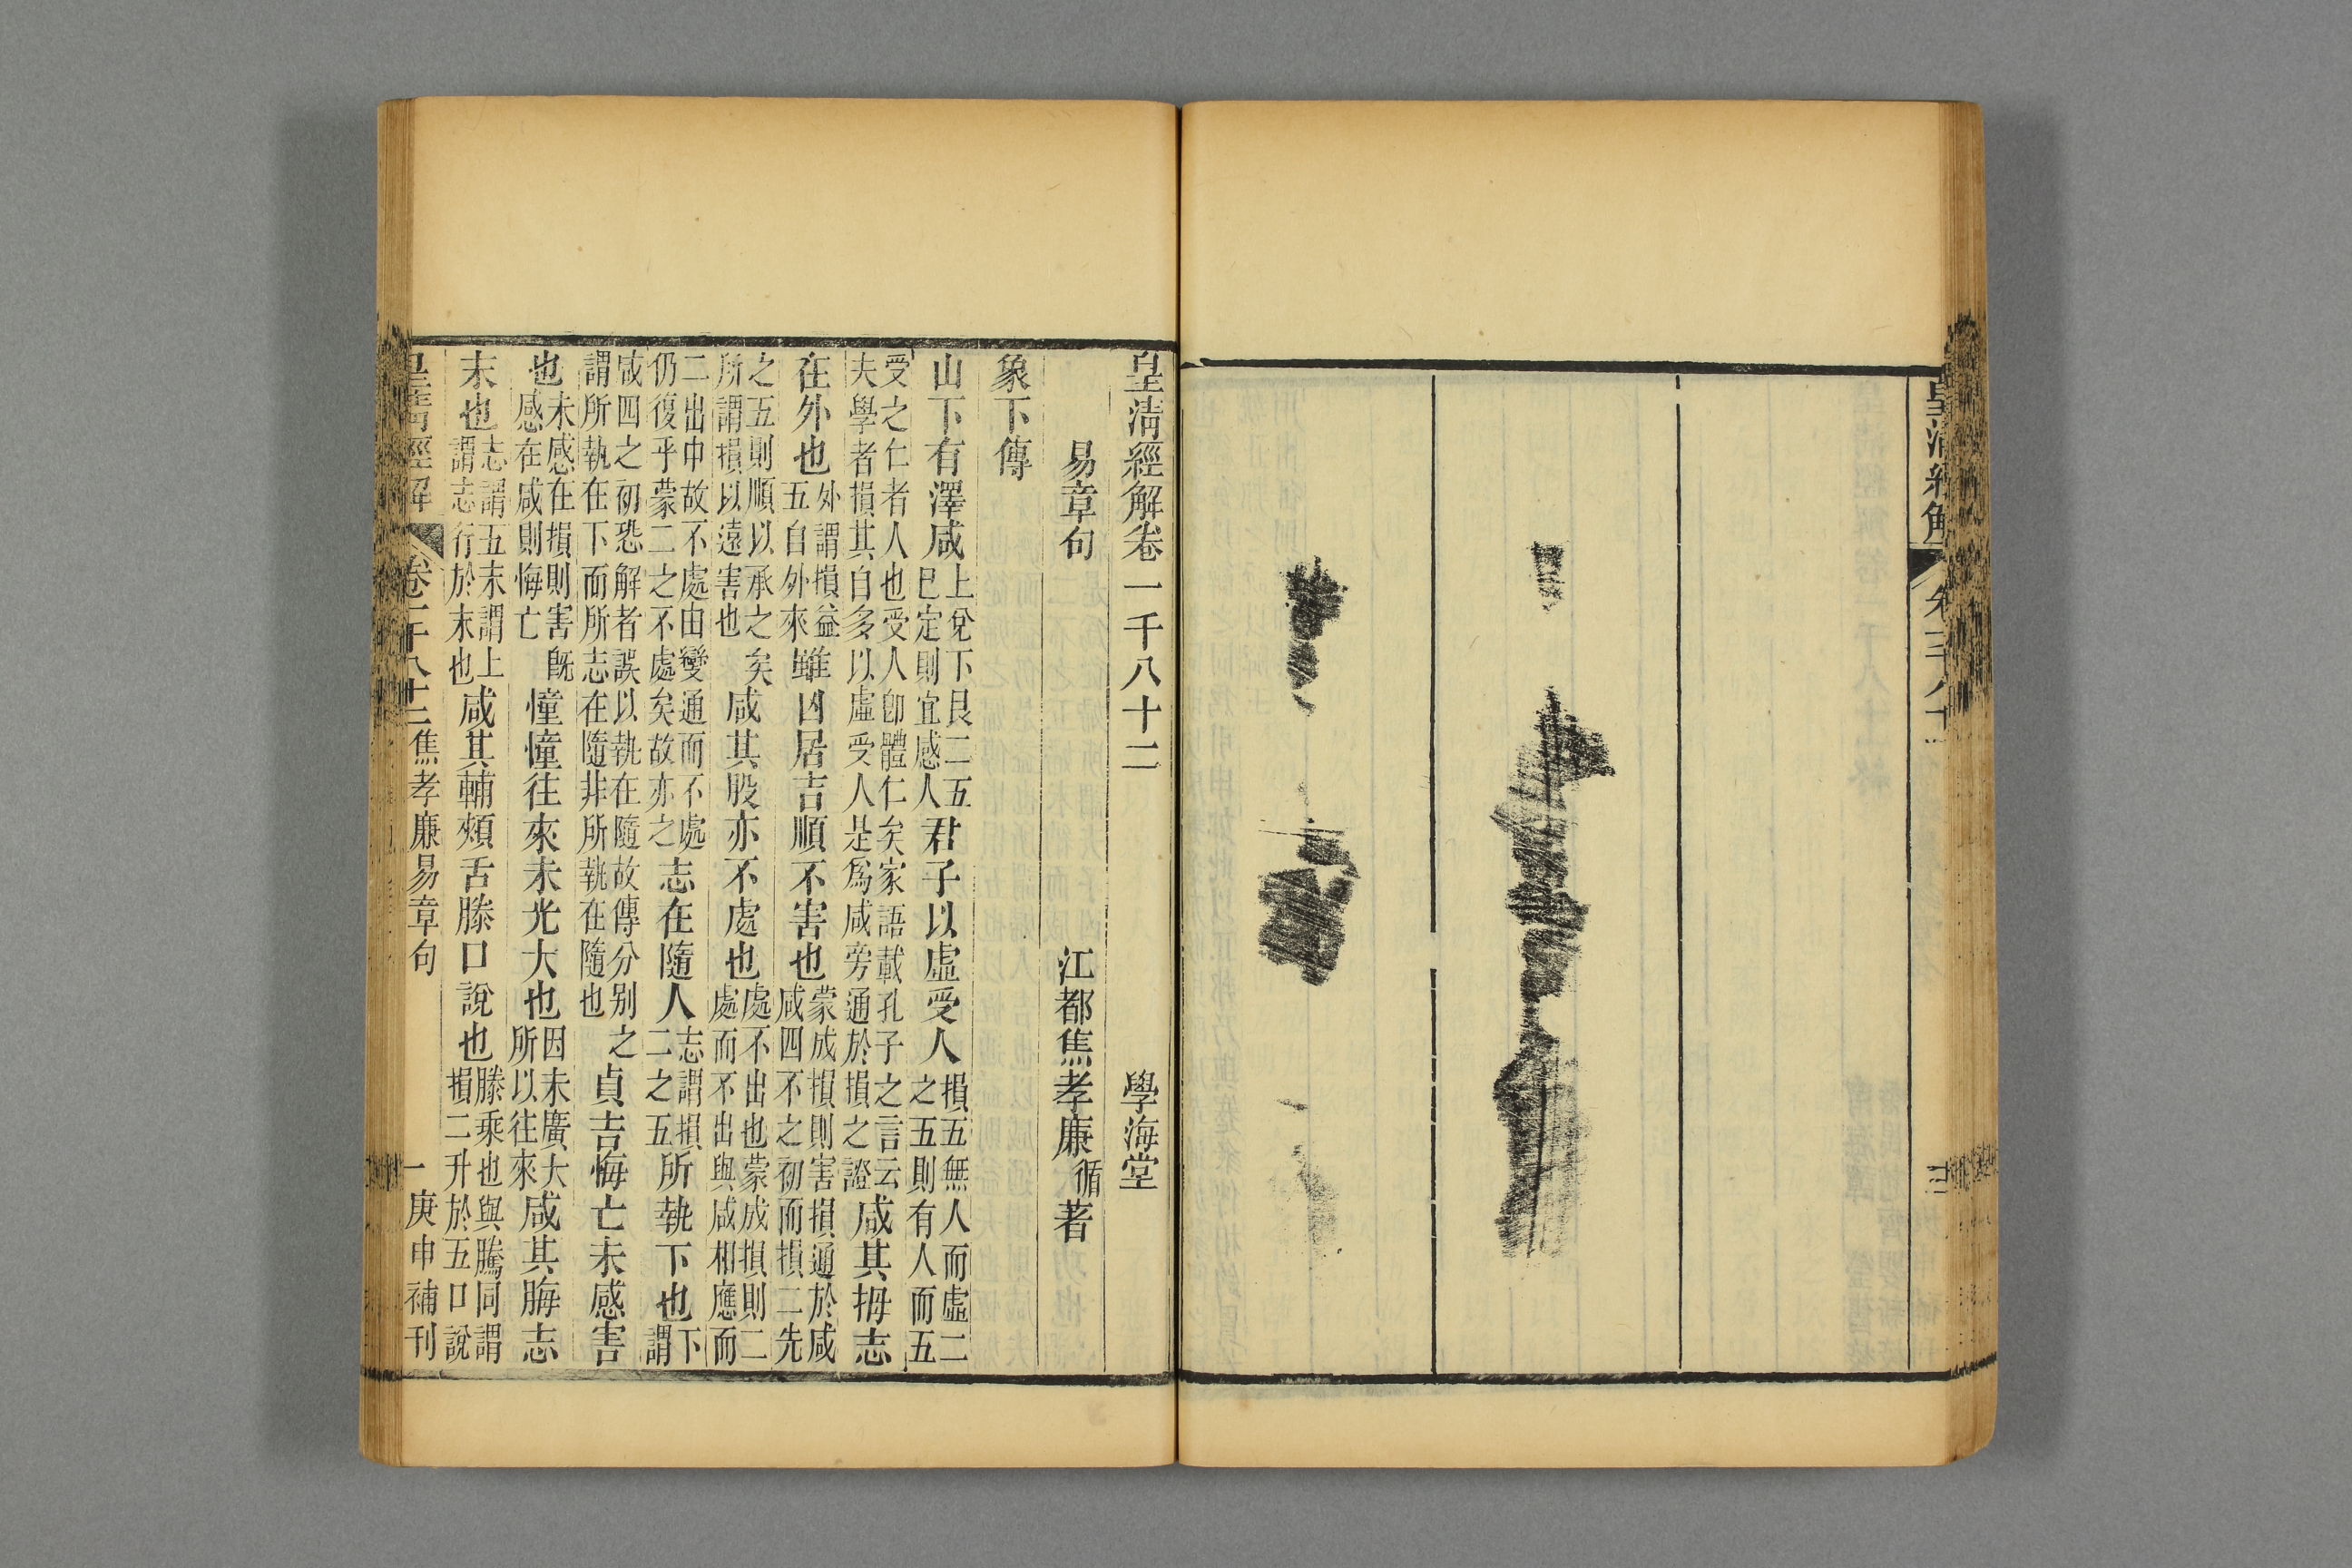 皇清經解
皇清經解卷一千八十二　學海堂
易章句　江都焦孝廉循著
象下傳
山下有澤咸上兌下艮二五已定則宜感人君子以虛受人損五無人而虛二之五則有人而五
受之仁者人也受人卽體仁矣家語載孔子之言云夫學者損其自多以虛受人是爲咸旁通於損之證咸其拇志
在外也外謂損益五自外來雖凶居吉順不害也蒙成損則害損通於咸咸四不之初而損二先
之五則順以承之矣所謂損以遠害也咸其股亦不處也處不出也蒙成損則二處而不出與咸相應而
二出中故不處由變通而不處仍復乎蒙二之不處矣故亦之志在隨人志謂損二之五所執下也下謂
咸四之初恐解者誤以執在隨故傳分别之謂所執在下而所志在隨非所執在隨也貞吉悔亡未感害
也未感在損則害旣感在咸則悔亡憧憧往來未光大也因未廣大所以往來咸其脢志
末也志謂五末謂上謂志行於末也咸其輔頰舌滕口說也滕乘也與騰同謂損二升於五口說
皇清經解　卷一千八十二　焦孝廉易章句　一　庚申補刊